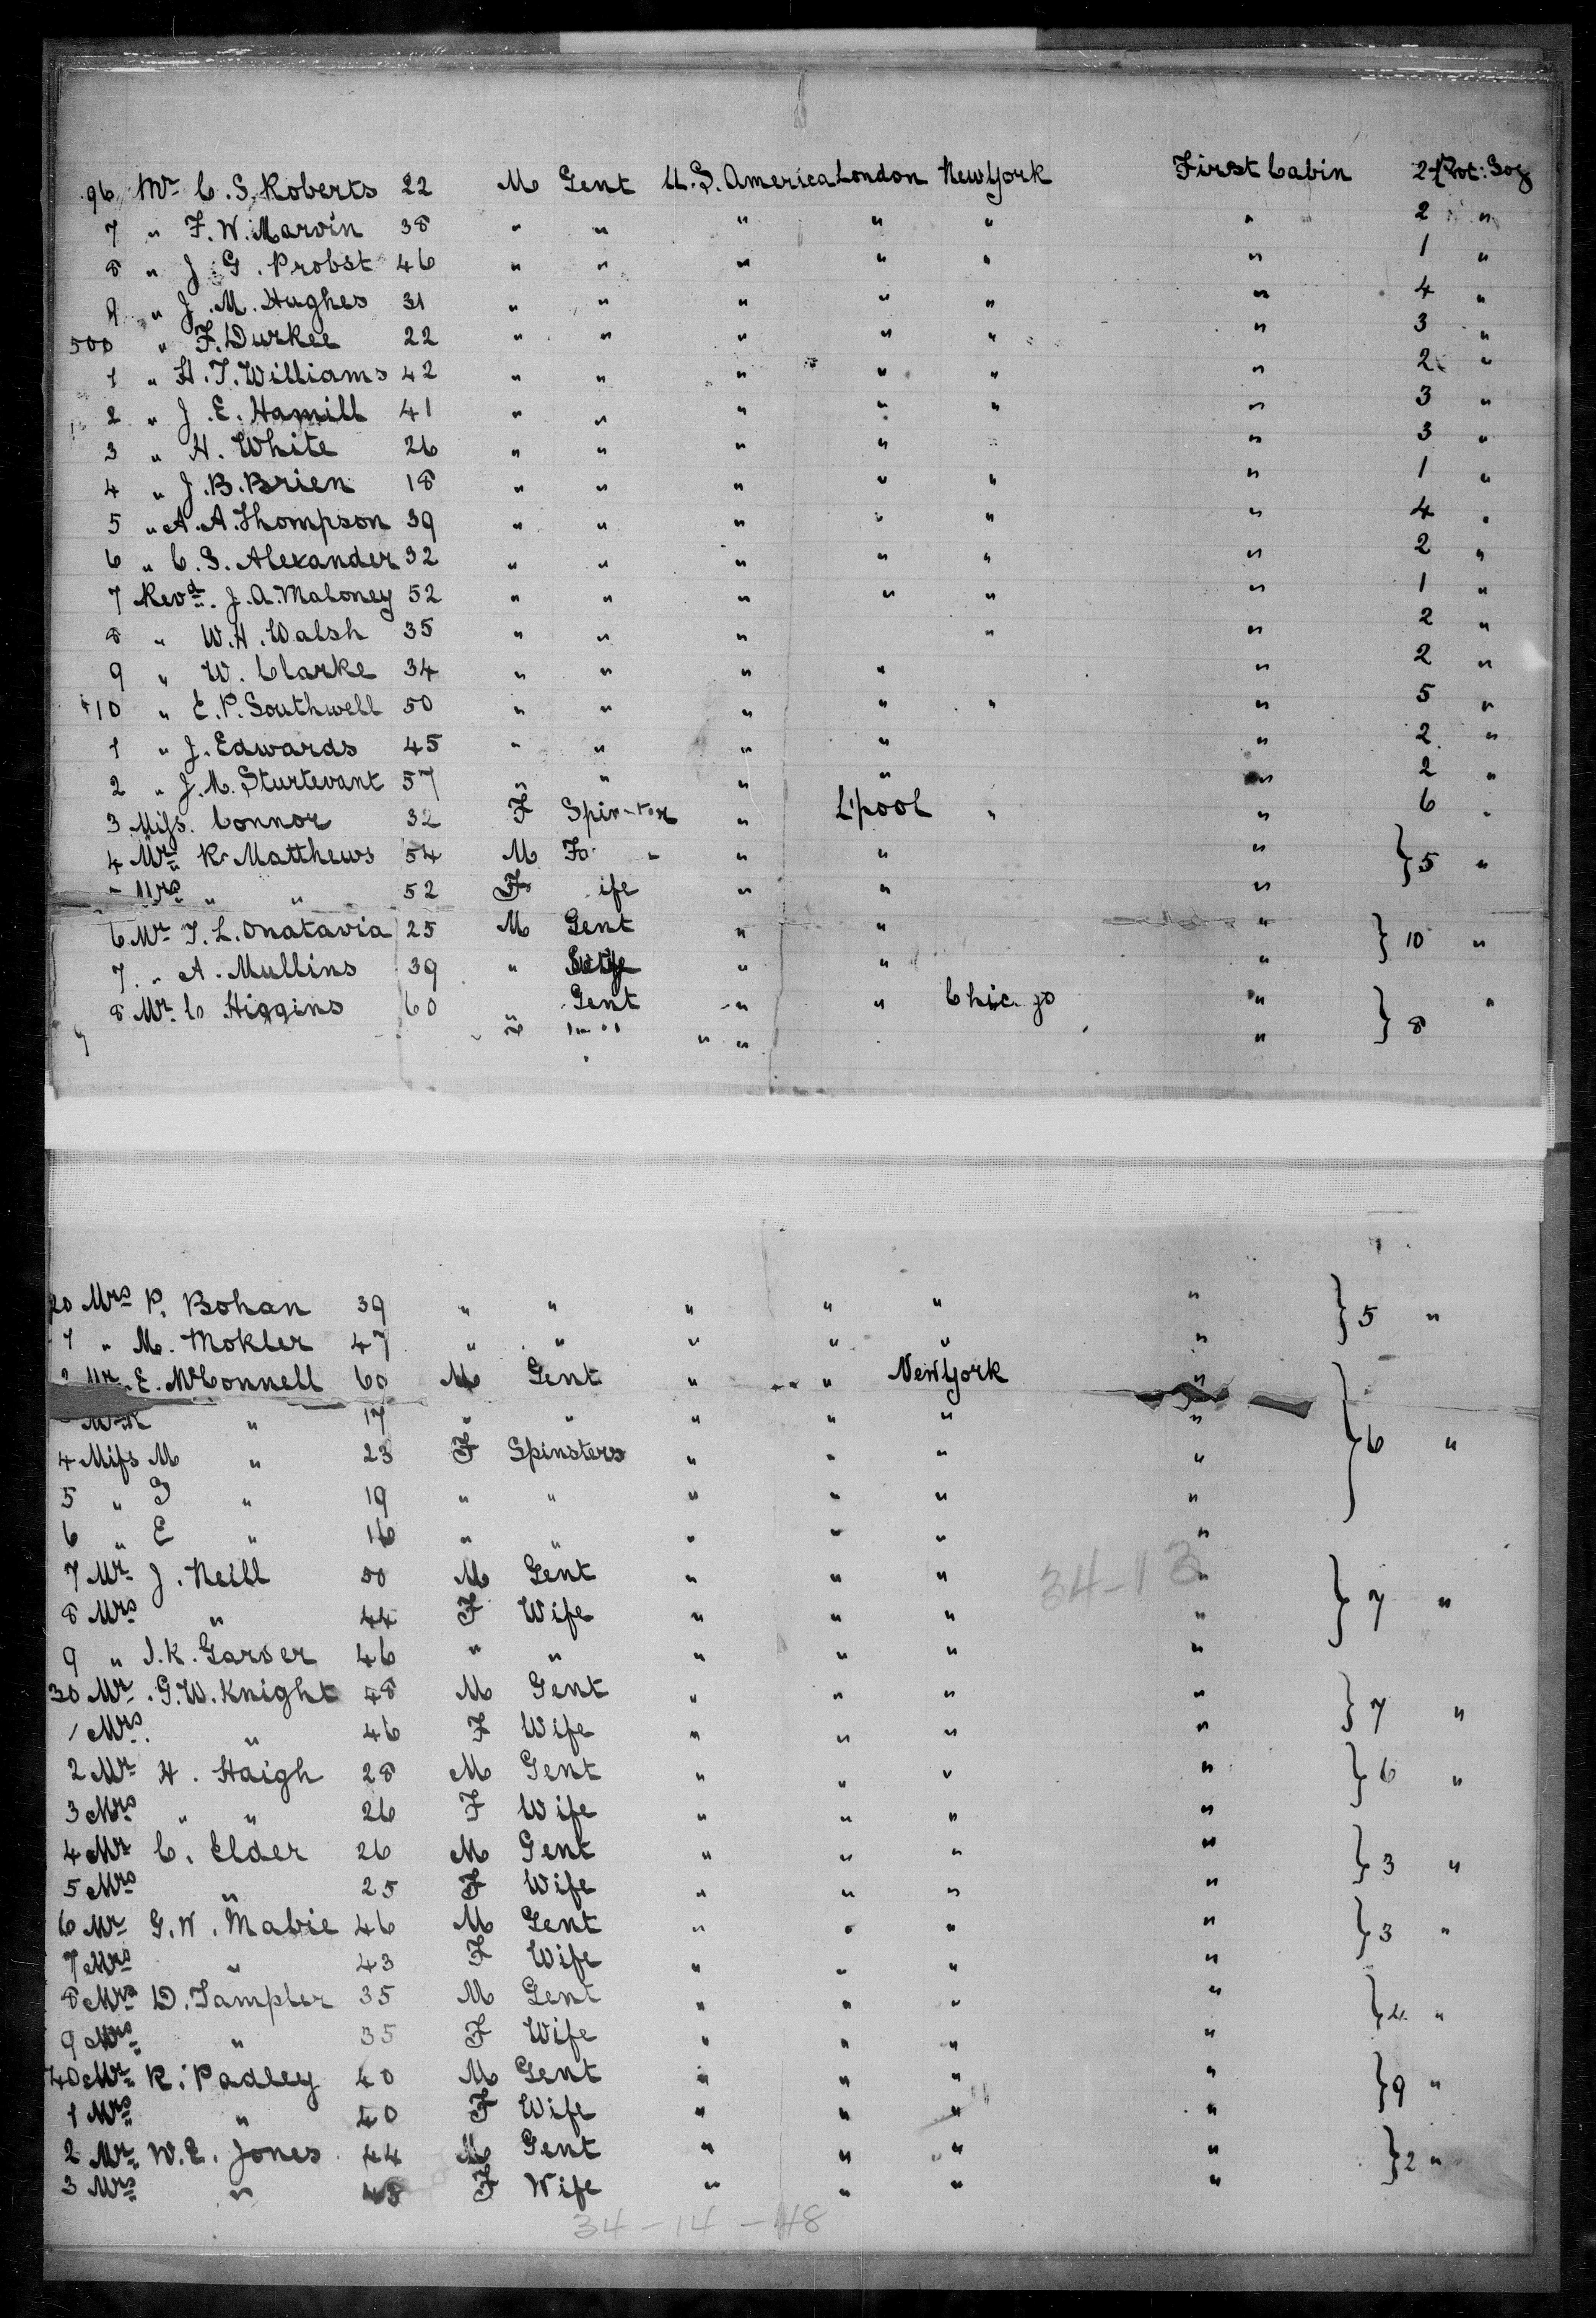 96 Mr C. S. Roberts 22 M Gent U.S. America London New York First Cabin 2 Prot:
7 " F. W. Marvin 38 " " " " " " 2 "
8 " J. G. Probst 46 " " " " " " 1 "
9 " J. M. Hughes 31 " " " " " " 4 "
500 " F. Durkee 22 " " " " " " 3 "
1 " H. T. Williams 42 " " " " " " 2 "
2 " J. E. Hamill 41 " " " " " " 3 "
3 " H. White 26 " " " " " " 3 "
4 " J. B. Brien 18 " " " " " " 1 "
5 " A. A. Thompson 39 " " " " " " 4 "
6 " C. S. Alexander 32 " " " " " " 2 "
7 Revd. J. A. Maloney 52 " " " " " " 1 "
8 " W. H. Walsh 35 " " " " " 2 "
9 " W. Clarke 34 " " " " " 2 "
10 " E. P. Southwell 50 " " " " " " 5 "
1 " J. Edwards 45 " " " " " 2 "
2 " J. M. Sturtevant 57 " " " " " 2 "
3 Miss. Connor 32 F " L'pool " " 6 "
4 Mr R. Matthews 54 M " " " } 5 "
Mrs " " 52 F " " "
6 Mr T. L. Onatavia 25 M Gent " " " } 10 "
7 " A. Mullins 39 " Wife " " "
8 Mr. C Higgins 60 Gent " " Chicago " } 8 "
" " "
20 Mrs P. Bohan 39 " " " " " " } 5 "
1 " M. Mokler 47 " " " " " "
Mr. E. McConnell 60 M Gent " " New York " } 6 "
" 17 " " " " " "
4 Miss M " 23 F Spinsters " " " "
5 " " 19 " " " " " "
6 " E " 16 " " " " " "
7 Mr J. Neill 50 M Gent " " " " } 7 "
34-13
8 Mrs " 44 F Wife " " " "
9 " J. K. Garver 46 " " " " " "
30 Mr. G. W. Knight 48 M Gent " " " " } 7 "
1 Mrs. " 46 F Wife " " " "
2 Mr H. Haigh 28 M Gent " " " " } 6 "
3 Mrs " " 26 F Wife " " " "
4 Mr C. Elder 26 M Gent " " " " } 3 "
5 Mrs " 25 F Wife " " " "
6 Mr G. W. Mabie 46 M Gent " " " " } 3 "
7 Mrs " 43 F Wife " " " "
8 Mrs D. Tampler 35 M Gent " " " " } "
9 Mrs " 35 F Wife " " " "
40 Mr. R. Padley 40 M Gent " " " " } 9 "
1 Mrs " 40 F Wife " " " "
2 Mr. W. E. Jones 44 M Gent " " " " } 2 "
3 Mrs " F Wife " " " "
34-14-48